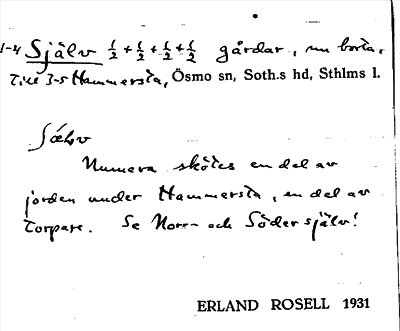 1-4 Själv ½ + ½ + ½ + ½ gårdar, nu borta,
Till 3-5 Hammersta, Ösmo sn, Soth.s hd, Sthlms l.
Numera skötes en del av
jorden under Hammersta, en del av
torpare. Se Norr- och Södersjälv!
ERLAND ROSELL 1931